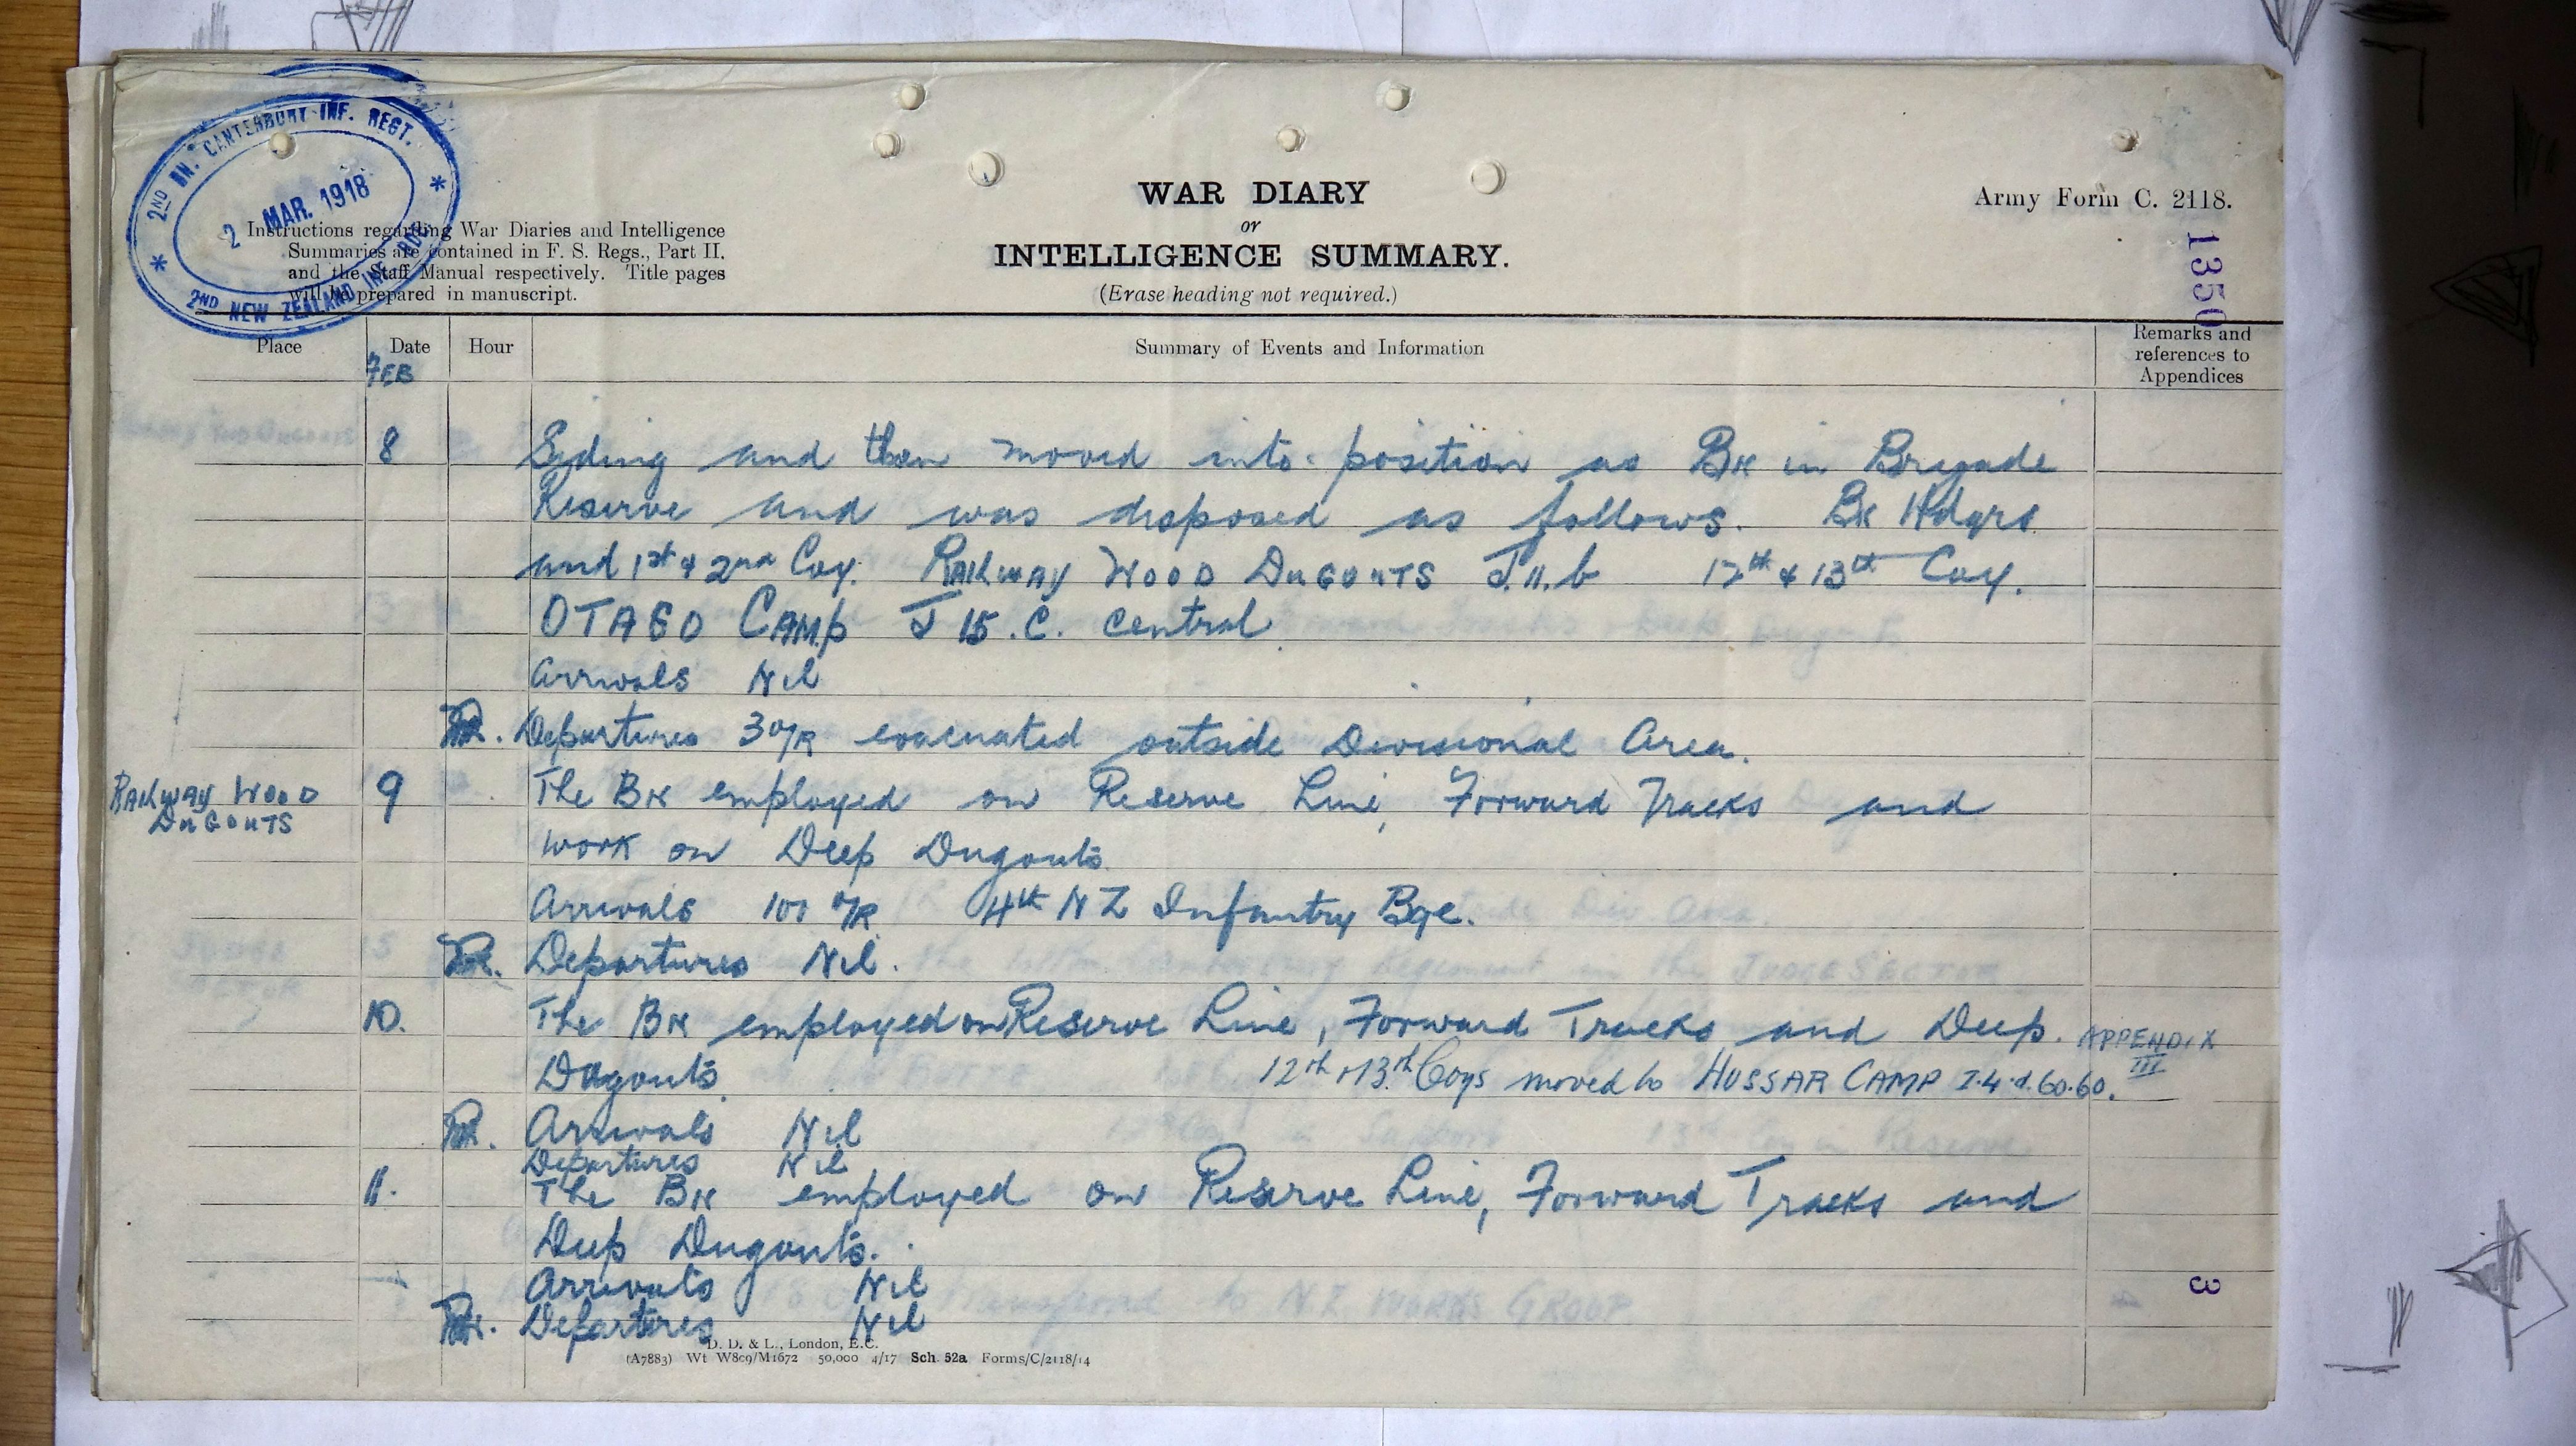 2ND BN. CANTERBURY INF. REGT.
2 MAR. 1918
2ND NEW ZEALAND INF. BDE.
Instructions regarding War Diaries and Intelligence
Summaries are contained in F. S. Regs., Part II.
and the Staff Manual respectively. Title pages
will be prepared in manuscript.
WAR DIARY
or
INTELLIGENCE SUMMARY.
(Erase heading not required.)
Army Form C. 2118.
1350
Place Date Hour Summary of Events and Information Remarks and
references to
Appendices
FEB
8 Siding and then moved into position as Bn in Brigade
Reserve and was disposed as follows. Bn Hdqrs
and 1st & 2nd Coy. RAILWAY WOOD DUGOUTS J.11.b 12th & 13th Coy.
OTAGO CAMP J 15.C. central
Arrivals Nil
Departures 3 O/R evacuated outside Divisional Area.
RAILWAY WOOD
DUGOUTS
9 The Bn employed on Reserve Line, Forward Tracks and
work on Deep Dugouts
Arrivals 100 O/R 4th N Z Infantry Bge.
Departures Nil.
10. The Bn employed on Reserve Line, Forward Tracks and Deep. APPENDIX
III
Dugouts. 12th & 13th Coys moved to HUSSAR CAMP I.4.d.60.60.
Arrivals Nil
Departures Nil
11. The Bn employed on Reserve Line, Forward Tracks and
Deep Dugouts.
Arrivals Nil
Departures Nil
3
D. D. & L., London, E.C.
(A7883) Wt W8c9/M1672 50,000 4/17 Sch. 52a Forms/C/2118/14